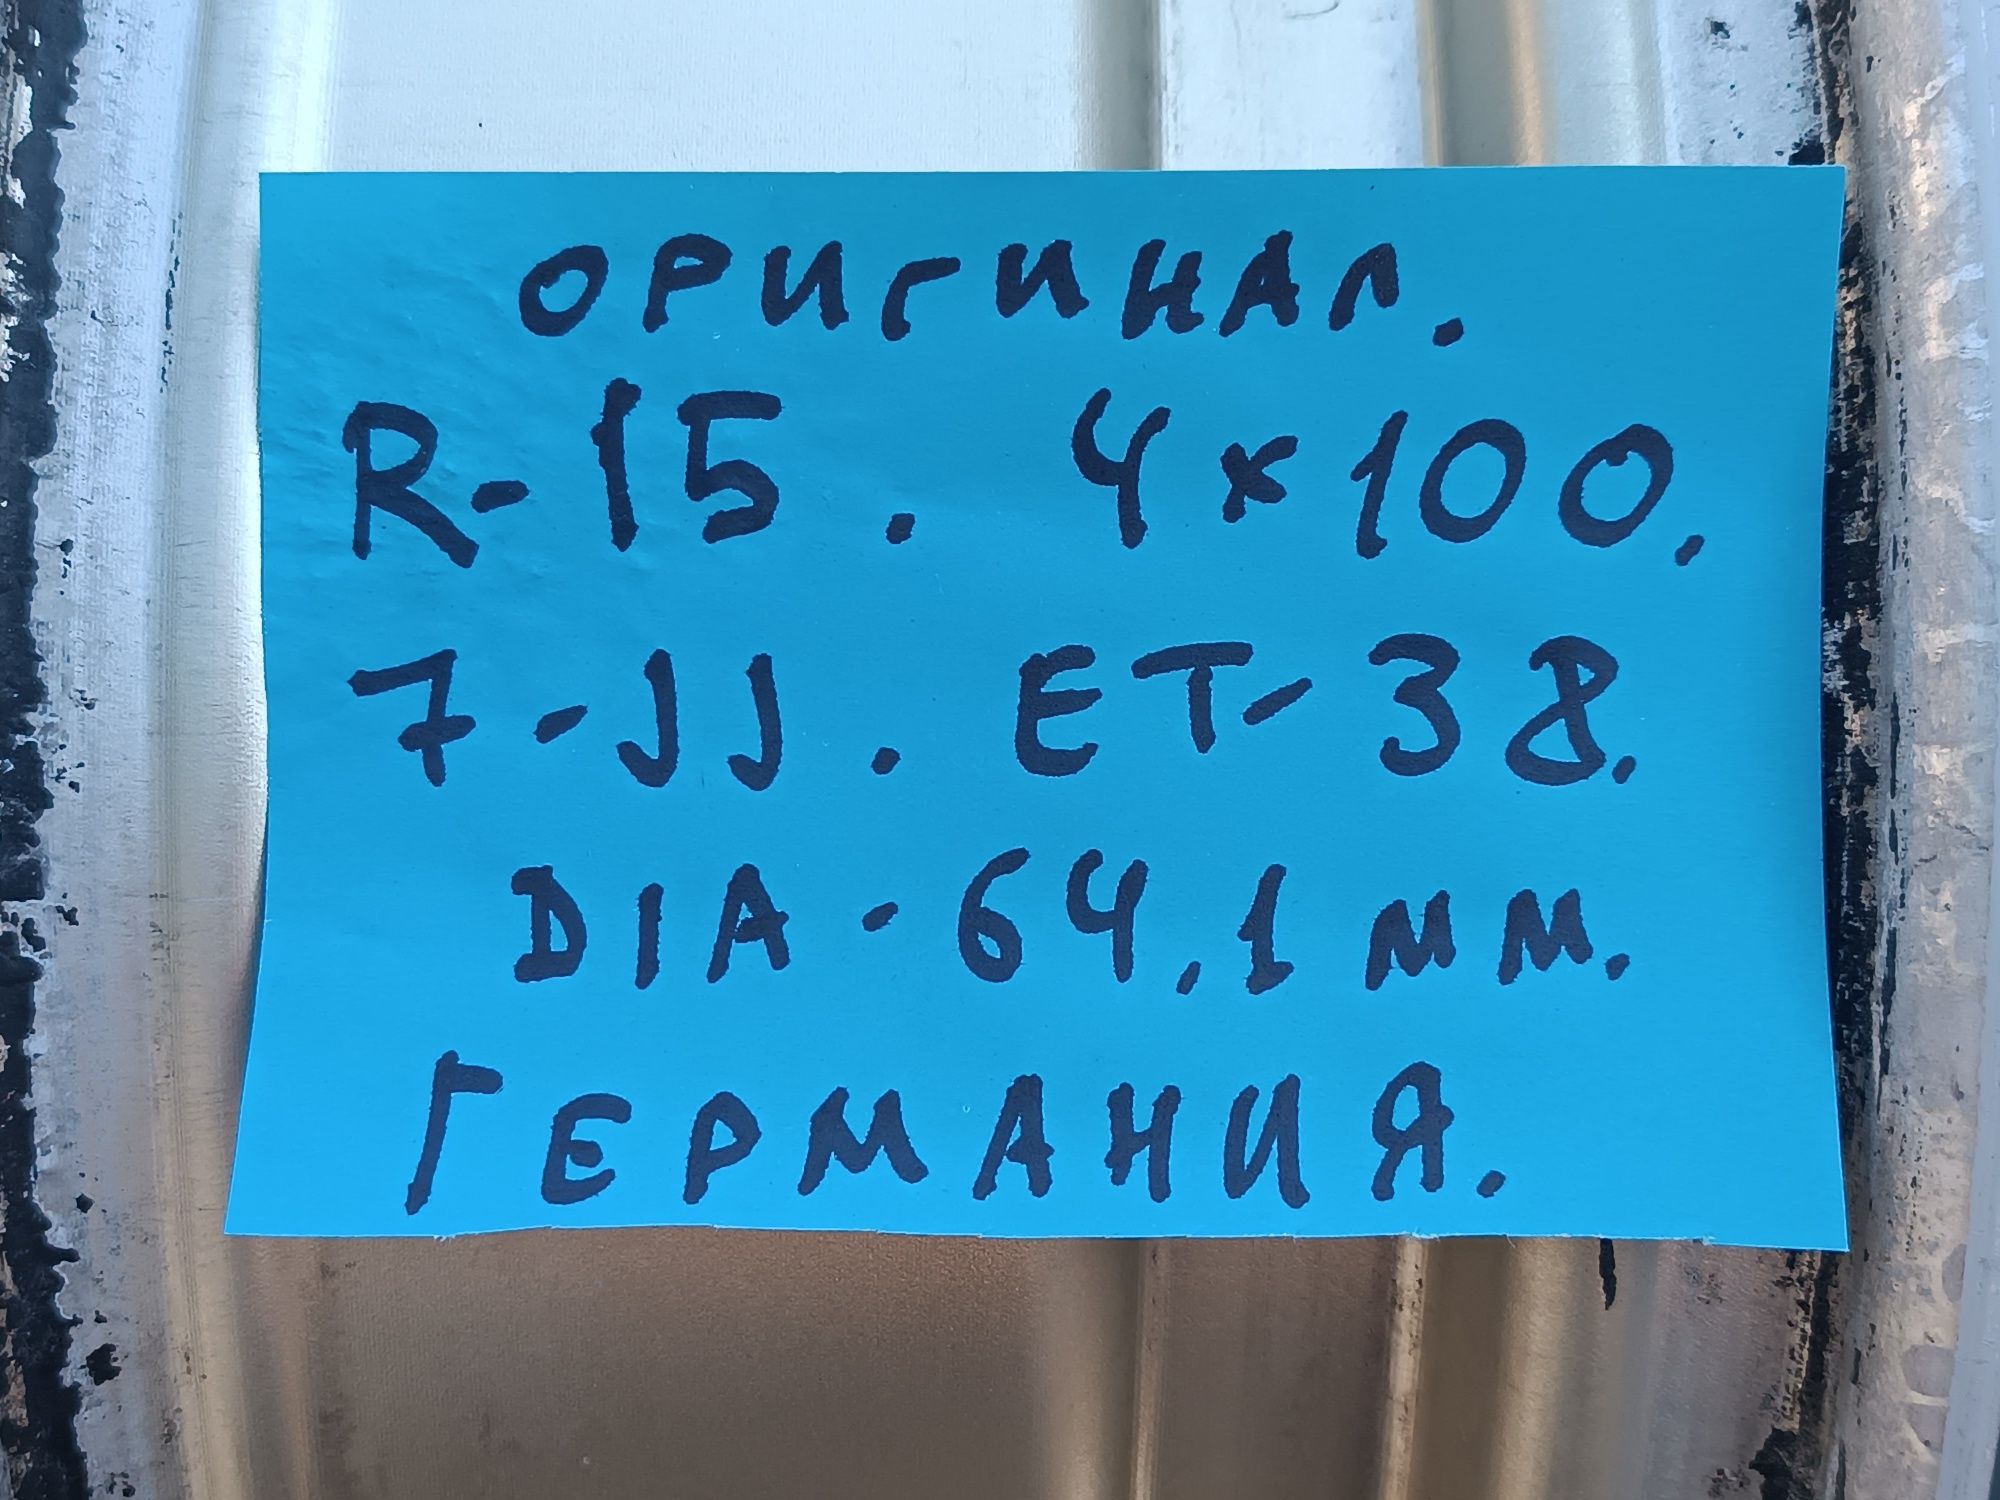 ОРИГИНАЛ.
R-15. 4×100.
7-JJ. ET-38.
DIA-64,1 мм.
ГЕРМАНИЯ.